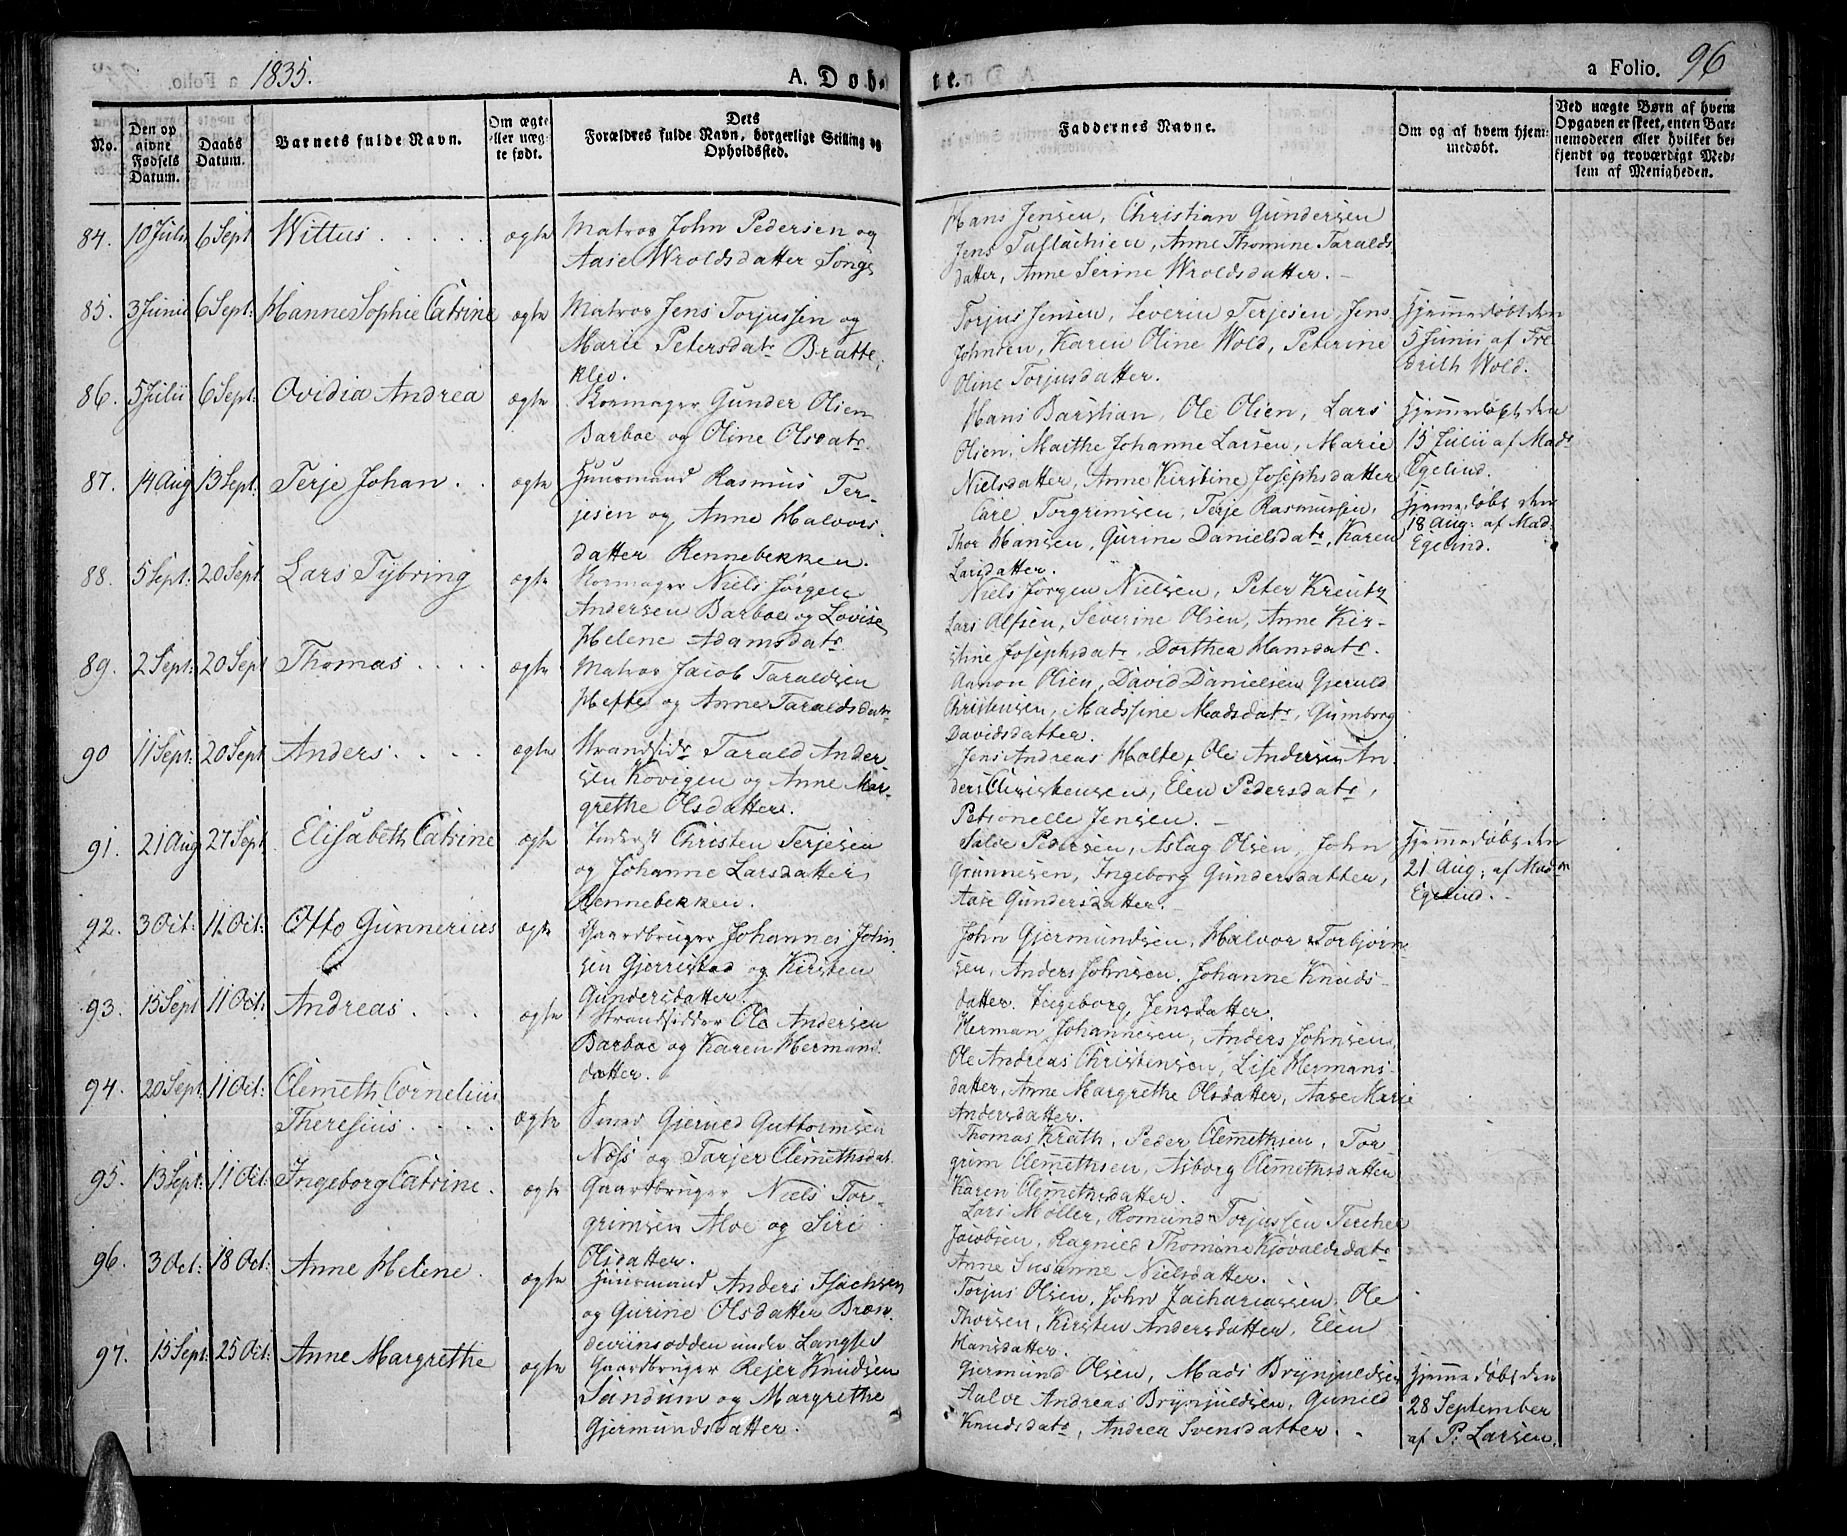 1835.
A. Dob-
te.
a Folio. 96
No.
Den opgivne Fødsels Datum.
Daabs Datum.
Barnets fulde Navn.
Om ægte eller uægte født.
Dets Forældres fulde Navn, borgerlig Stilling og Opholdssted.
Faddernes Navne.
Om og af hvem hjemmedøbt.
Ved uægte Børn af hvem Opgaven er skeet, enten Barnemoderen eller hvilket bekjendt og troværdigt Medlem af Menigheden.
84. 10 Julii 6 Sept Wittus ægte
Matros John Pedersen og
Aase Wroldsdatter Songe
Hans Jensen, Christian Gundersen
Jens Tallachsen, Anne Thomine Taralds
datter, Anne Serine Wroldsdatter.
85. 3 Junii 6 Sept: Hanne Sophie Catrine ægte
Matros Jens Torjussen og
Marie Petersdatr Bratte
klev.
Torjus Jensen, Severin Terjesen, Jens
Johnsen, Karen Oline Wold, Peterine
Oline Torjusdatter.
Hjemmedøbt den
5 Junii af Fre
drik Wold.
86. 5 Julii 6 Sept: Ovidia Andrea ægte
Skomager Gunder Olsen
Barboe og Oline Olsdatr.
Hans Barstian, Ole Olsen, Lars
Olsen, Maithe Johanne Larsen, Marie
Nielsdatter, Anne Kirstine Josephsdatter
Hjemmedøbt den
15 Julii af Mad:
Egelund.
87. 14 Aug 13 Sept: Terje Johan ægte
Huusmand Rasmus Ter-
jesen og Anne Halvors
datter Rennebekken.
Carl Torgrimsen, Terje Rasmussen,
Thor Hansen, Gurine Danielsdatr, Karen
Larsdatter.
Hjemmedøbt den
18 Aug: af Mad:
Egelund.
88. 5 Sept: 20 Sept Lars Tybring ægte
Skomager Niels Jørgen
Andersen Barboe og Lovise
Helene Adamsdatr
Niels Jørgen Nielsen, Peter Kreutz
Lars Alfsen, Severine Olsen, Anne Kir-
stine Josephsdatr, Dorthea Hansdatr.
89. 2 Sept: 20 Sept Thomas ægte
Matros Jacob Taraldsen
Hefte og Anne Taraldsdatr
Aanon Olsen, David Danielsen, Gjeruld
Christensen, Madssine Madsdatr, Gumborg
Davidsdatter.
90 11 Sept: 20 Sept Anders ægte
Strandsidr Tarald Ander-
sen Kovigen og Anne Mar-
grethe Olsdatter.
Jens Andreas Holte, Ole Andersen, An
ders Christensen, Elen Pedersdatr,
Petronelle Jensen.
91. 21 Aug 27 Sept Elisabeth Catrine ægte
Inderst Christen Terjesen
og Johanne Larsdatter
Rennebekken.
Salve Pedersen, Aslag Olsen, John
Grunnesen, Ingeborg Gundersdatter,
Aase Gundersdatter.
Hjemmedøbt den
21 Aug: af Mad:
Egelund.
92. 3 Oct: 11 Oct: Otto Gunnerius ægte
Gaardbruger Johannes John
sen Gjerrestad og Kirsten
Gundersdatter.
John Gjermundsen, Halvor Torbjørn
sen, Anders Johnsen, Johanne Knuds-
datter. Ingeborg Jensdatter.
93. 15 Sept 11 Oct: Andreas ægte
Strandsidder Ole Andersen
Barboe og Karen Hermans
datter.
Herman Johannesen, Anders Johnsen
Ole Andreas Christensen, Lise Hermans-
datter, Anne Margrethe Olsdatter, Aase Marie
Andersdatter.
94. 20 Sept: 11 Oct: Clemeth Cornelius
Theresius ægte
Smed Gjerued Guttormsen
Næss og Tarjer Clemethsdat.
Thomas Krath, Peder Clemethsen, Tor
grim Clemethsen, Asborg Clemethsdatter
Karen Clemethsdatter.
95. 13 Sept: 11 Oct: Ingeborg Catrine ægte
Gaardbruger Niels Tor-
grimsen Aloe og Siri
Olsdatter.
Lars Møller, Romund Torjussen, Tercher
Jacobsen, Ragnild Thomine Kjovaldsdatr
Anne Susanne Nielsdatter.
96. 3 Oct: 18 Oct: Anne Helene ægte
Huusmand Anders Isachsen
og Gurine Olsdatter Bræn
deviinsodden under Langsted
Torjus Olsen, John Zachariassen, Ole
Thorsen, Kirsten Andersdatter, Elen
Hansdatter.
97. 15 Sept: 25 Oct: Anne Margrethe ægte
Gaardbruger Rejer Knudsen
Sundum og Margrethe
Gjermundsdatter.
Gjermund Olsen, Mads Brynjuldsen
Aalve Andreas Brynjuldsen, Gunild
Knudsdatr, Andrea Svensdatter.
Hjemmedøbt den
28 September
af P: Larsen.